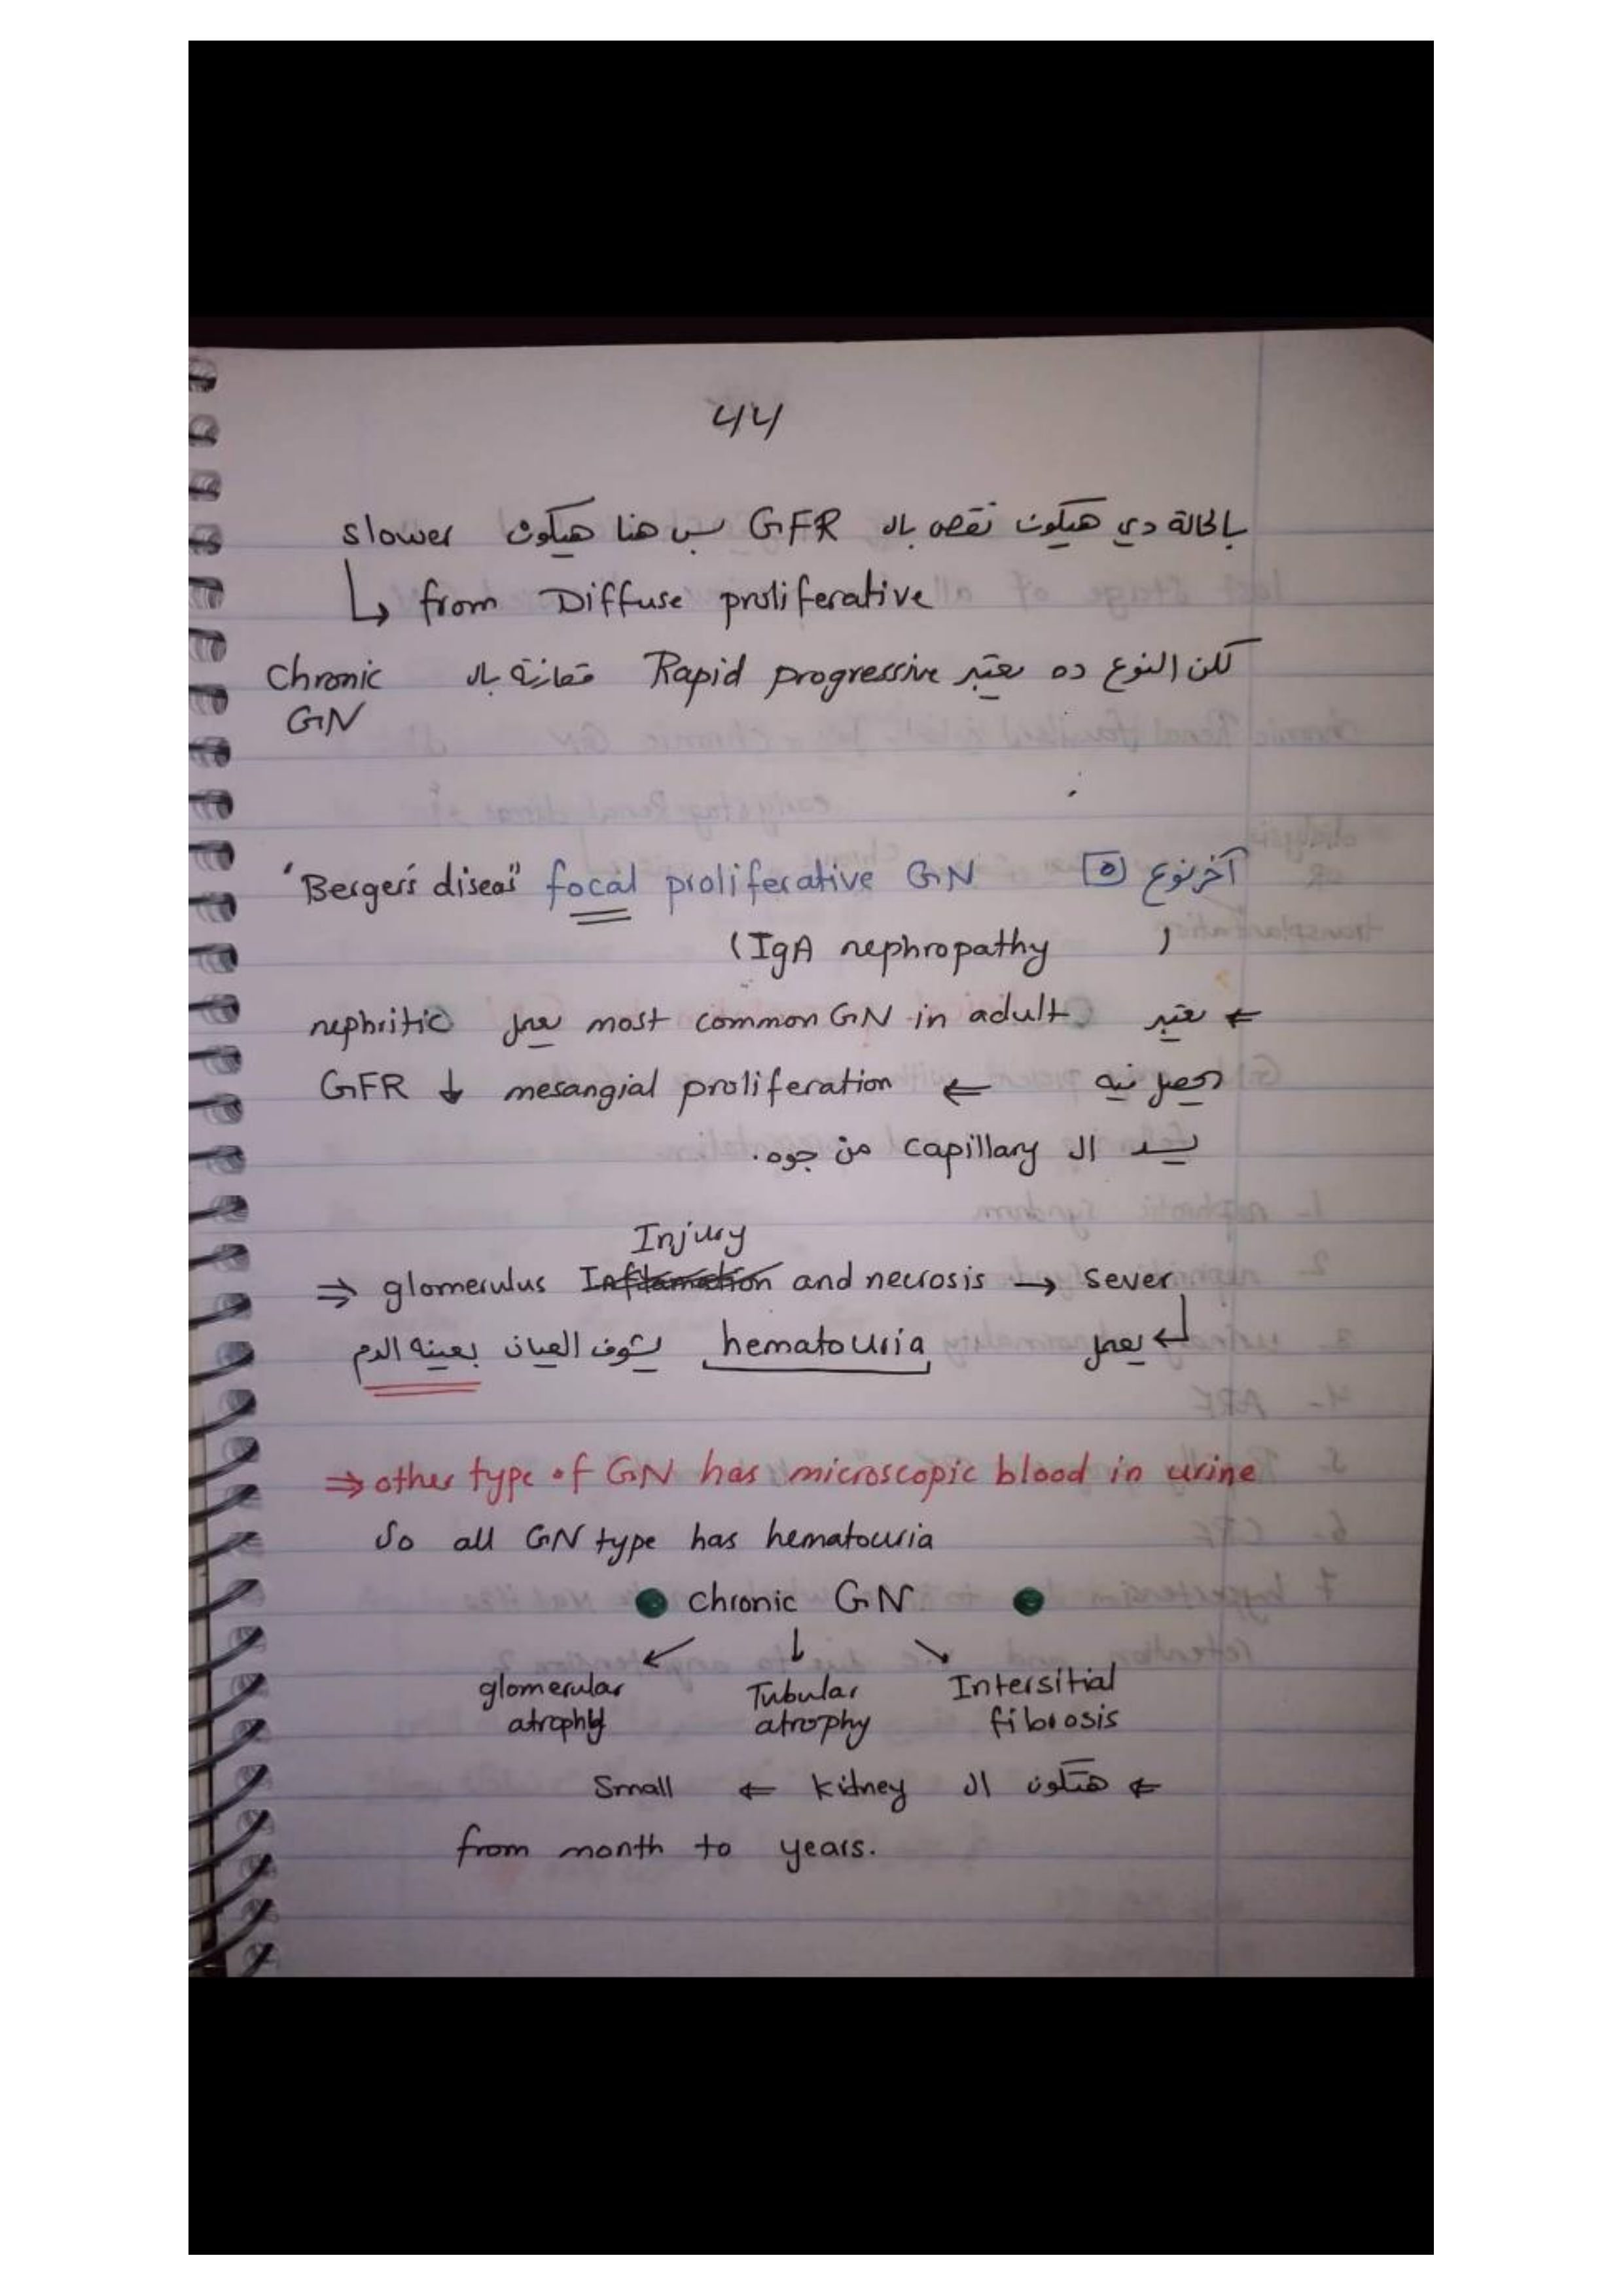 44
بالحالة دي هيكون نقص بال GFR بس هنا هيكون slower
↳ from Diffuse proliferative
لكن النوع ده يعتبر Rapid progressive مقارنة بال Chronic
GN
آخر نوع 5 focal proliferative GN "Berger's diseas"
(IgA nephropathy)
⇐ يعتبر most common GN in adult يعمل nephritic
يحصل فيه ⇐ mesangial proliferation ↓ GFR
يسد ال capillary من جوه.
Injury
⇒ glomerulus Inflamation and necrosis → sever
↲ يعمل hematouria يشوف العيان بعينه الدم
⇒ other type of GN has microscopic blood in urine
So all GN type has hematouria
chronic GN
glomerular atrophy
Tubular atrophy
Intersitial fibrosis
⇐ هتكون ال kidney ⇐ Small
from month to years.